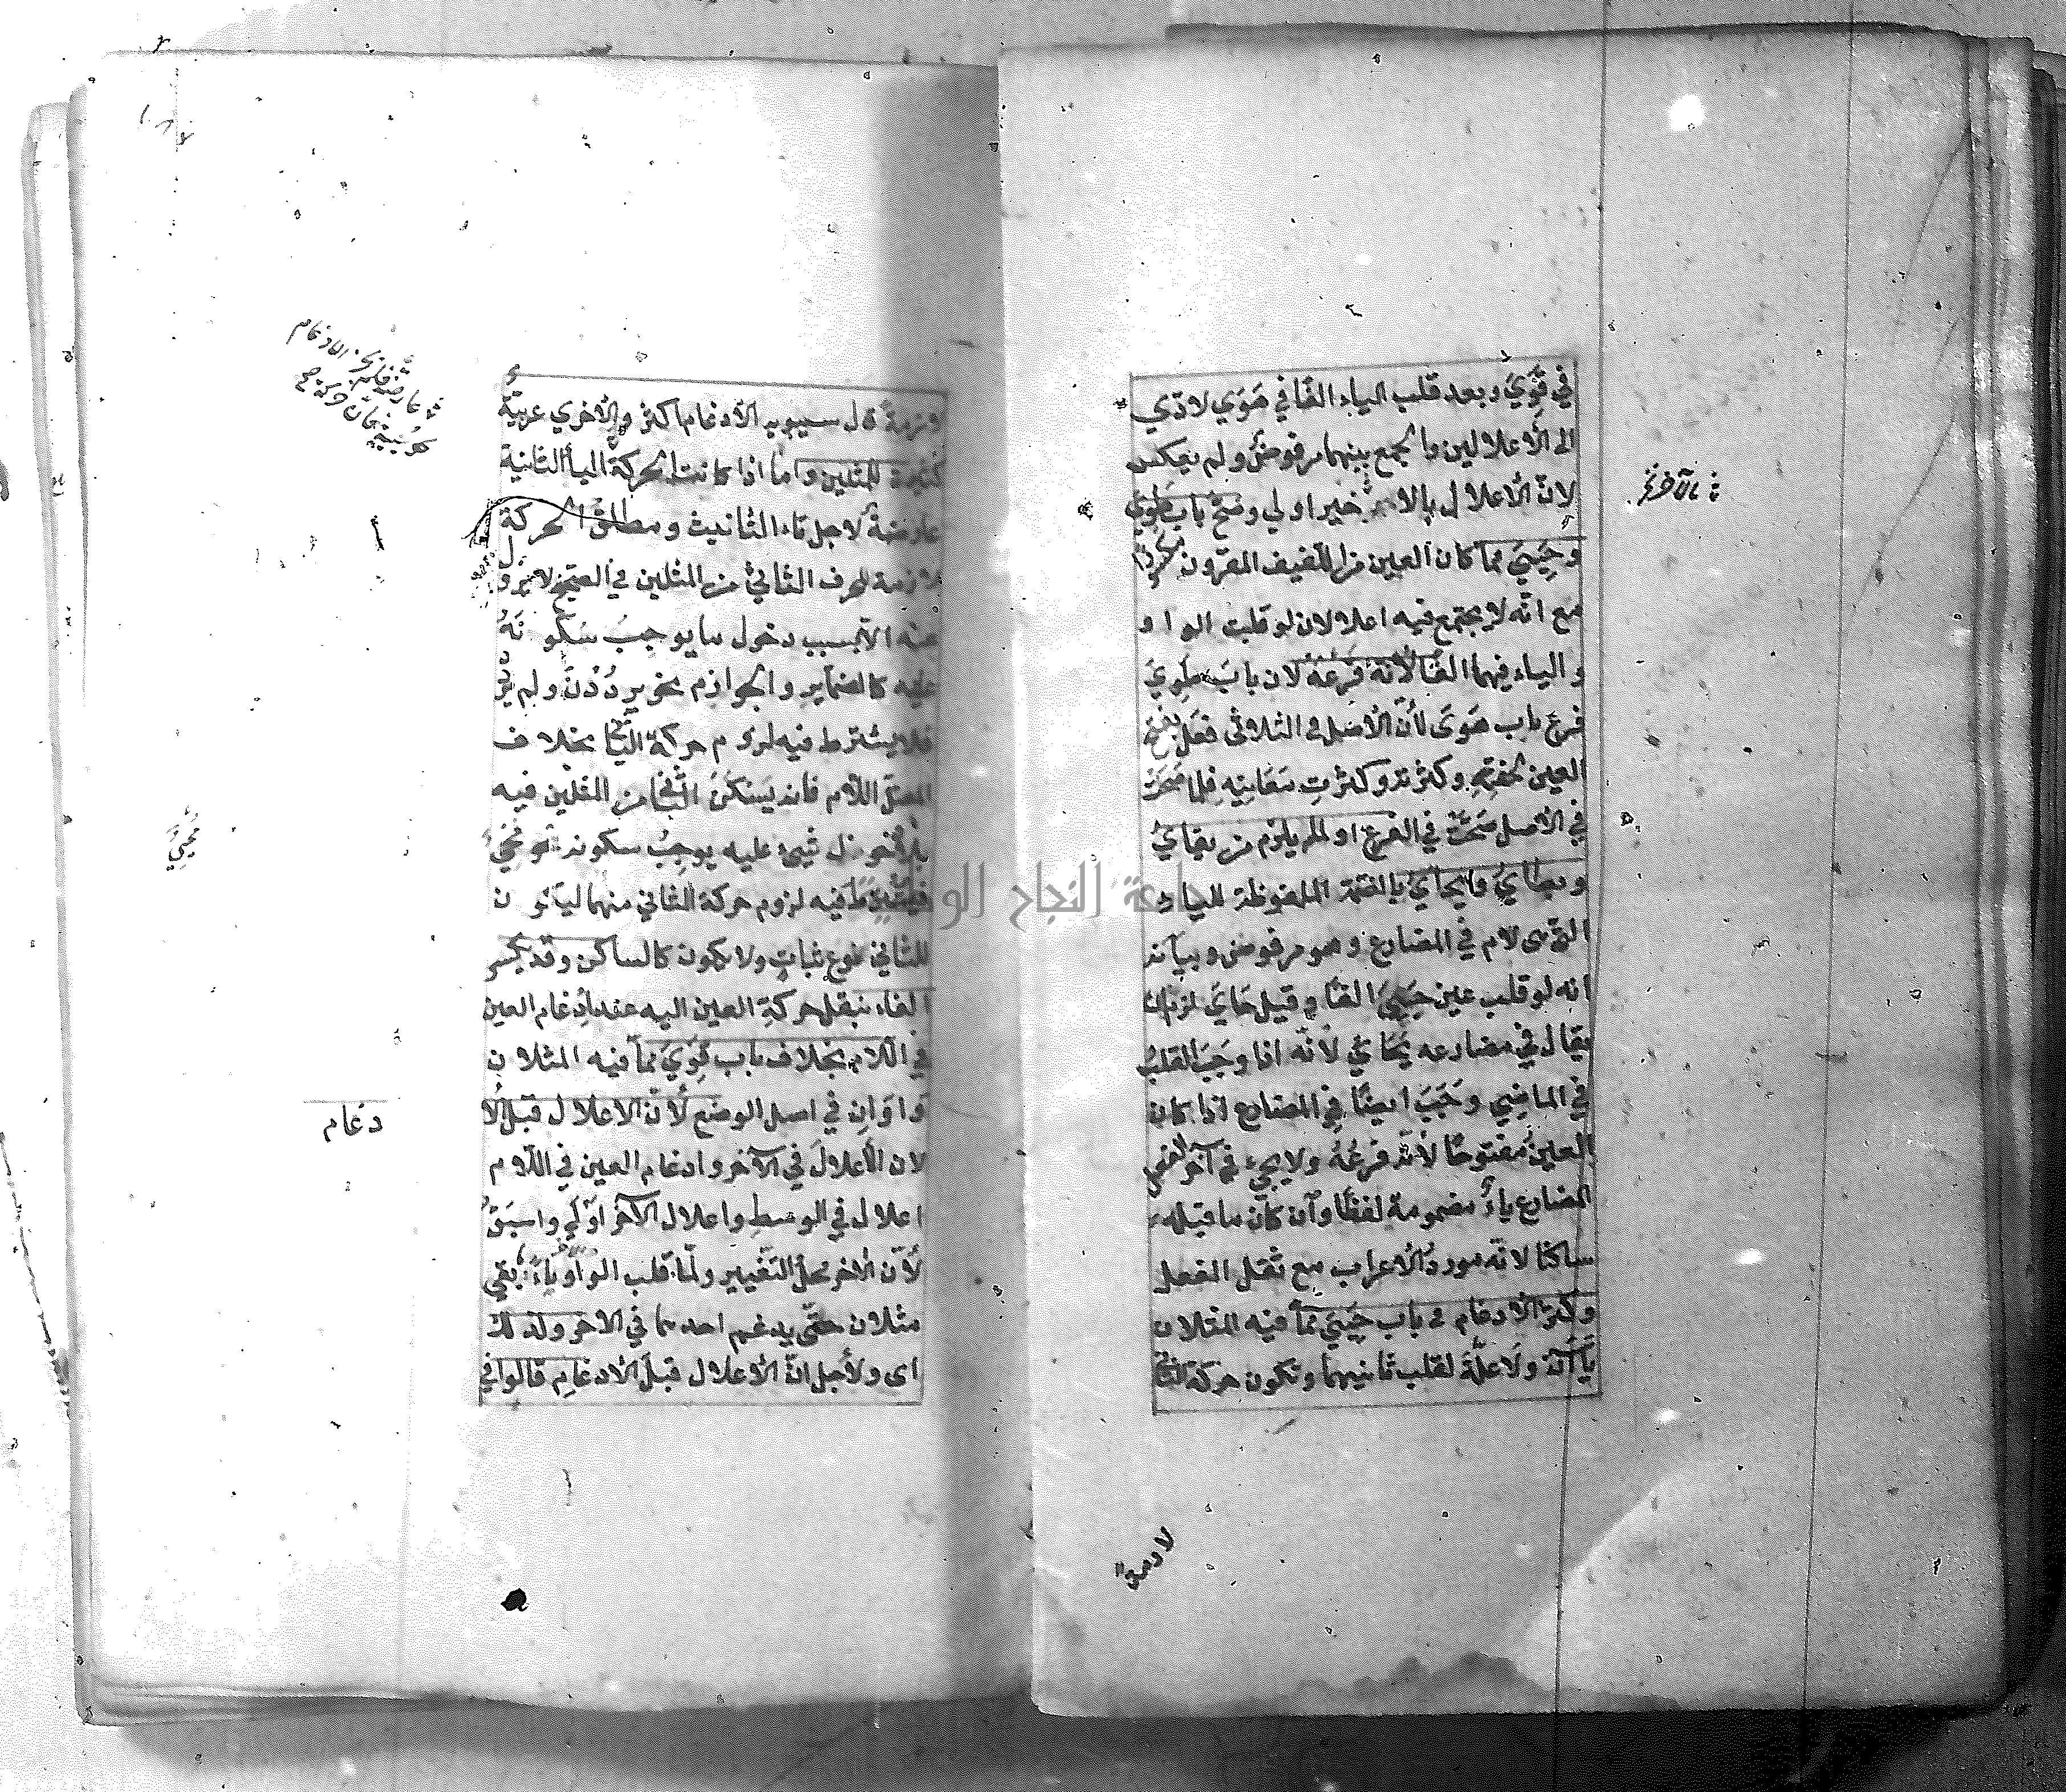 في قَوِيَ وبعد قلب الياء الفا في هَوَي لادّي
الى الأعلالين والجمع بينهما مرفوض ولم يعكس
لانّ الأعلال بالاخير اولي وصحّ باب طَوِيَ
وحَيِيَ ممّا كان العين من اللفيف المقرون
مع انّه لا يجتمع فيه اعلالان لو قلبت الواو
والياء فيهما الفا لأنّه فرعه لان باب طَوِيَ
فرع باب هَوَى لأنّ الأصل في الثلاثي فعَل بفتح
العين لخفّته وكثرته وكثرت معانيه فلما صحّت
في الأصل صحّت في الفرع او لم يلزم من يقايُ
ويطايُ ويحايُ بالضمّة الملفوظة للياء
التي هي لام في المضارع وهو مرفوض وبيانه
انه لو قلب عين حَيِيَ الفا وقيل حَايَ لزم ان
يقال في مضارعه يَحَايُ لأنّه اذا وجَبَ القلبُ
في الماضي وجَبَ ايضًا في المضارع اذا كان
العين مفتوحًا لأنّه فرعُهُ ولا يجيء في آخر الفعل
المضارع ياءٌ مضمومة لفظًا وان كان ما قبلها
ساكنا لانّه مورد الأعراب مع ثقل الفعل
وكثر الأدغام في باب حَيِيَ ممّا فيه المثلان
يَاآنِ ولا علّةَ لقلب ثانيهما وتكون حركة الثاني
لازمة
بالآخر
لازمة قال سيبويه الأدغام اكثر والأخري عربيّة
كثيرة للمثلين واما اذا كانت الحركة الياء الثانية
عارضة لاجل تاء التأنيث ومطلق الحركة
لازمة للحرف الثاني من المثلين في الصحيح لا يزول
عنه الا بسبب دخول ما يوجب سكونَهُ
عليه كالضماير والجوازم نحو يردُدْنَ ولم
فلا يشترط فيه لزوم حركة الثاني بخلاف
المعتلّ اللّام فانه يَسْكُنُ الثاني من المثلين فيه
بلا دخول شيئ عليه يوجب سكونه نحو
فيشترط فيه لزوم حركة الثاني منهما ليكون
للثاني نوع ثبات ولا يكون كالساكن وقد يكسر
الفاء بنقل حركة العين اليه عند ادغام العين
في اللّام بخلاف باب قَوِيَ ممّا فيه المثلان
واوان في اصل الوضع لأنّ الاعلال قبل الا
دغام
لان الأعلالَ في الآخر وادغام العين في اللّام
اعلال في الوسط واعلال الآخر اولي واسبق
لأنّ الاخر محلّ التغيير ولمّا قلب الواو ياءً بقي
مثلان حتّى يدغم احدهما في الاخر ولذلك
اى ولأجل انّ الأعلال قبل الأدغام قالوا في
جامعة النجاح الوطنية